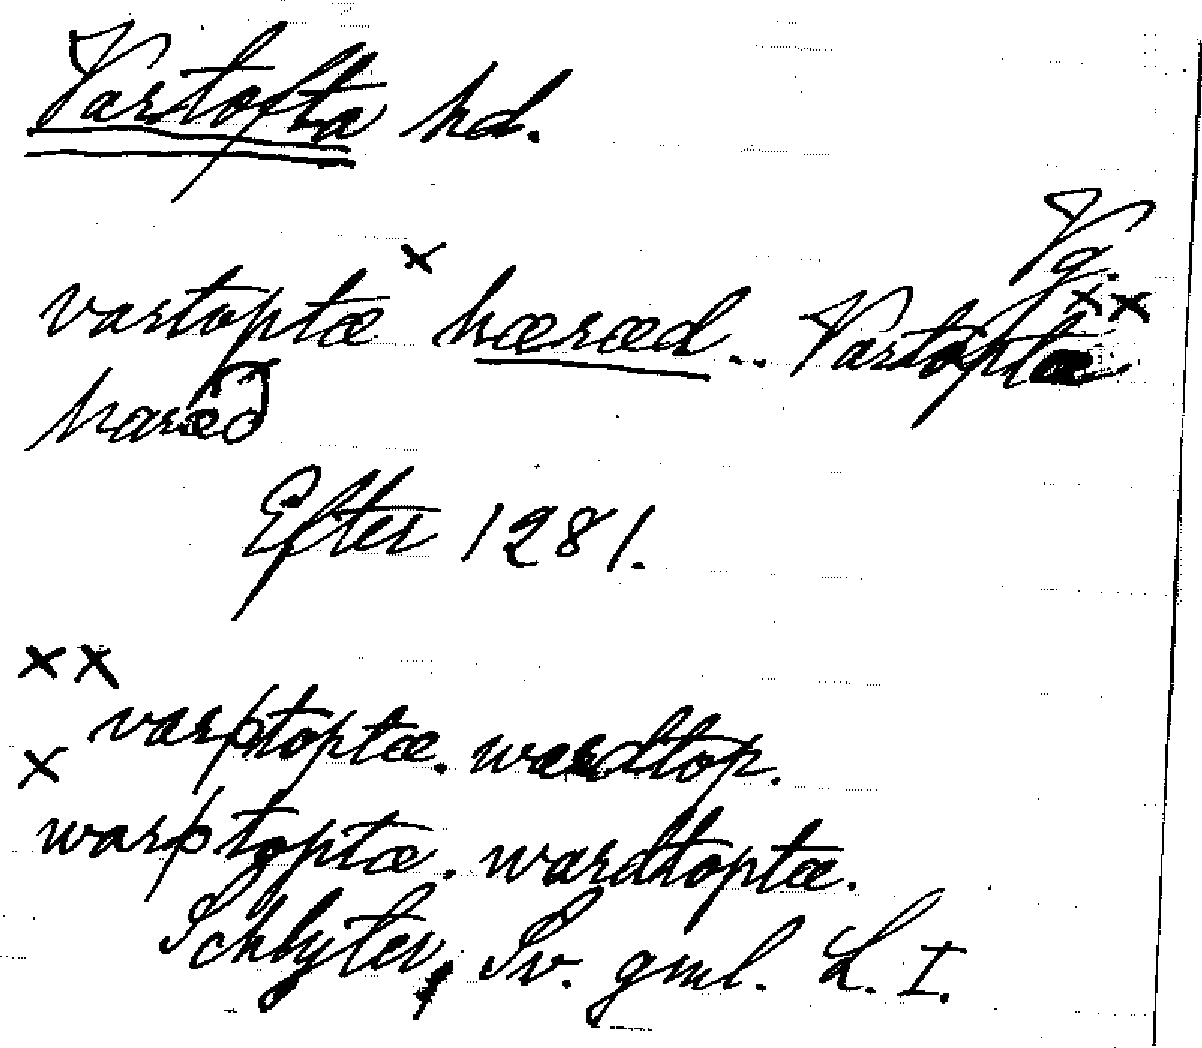 Vartofta hd.
Vg.
vartoptæ × hæræd .. Vartoptæ ××
haræð
Efter 1281.
××
varþtoptæ. wardtop.
×
warþtoptæ. wardtoptæ.
Schlyter, Sv. gml. L. I.